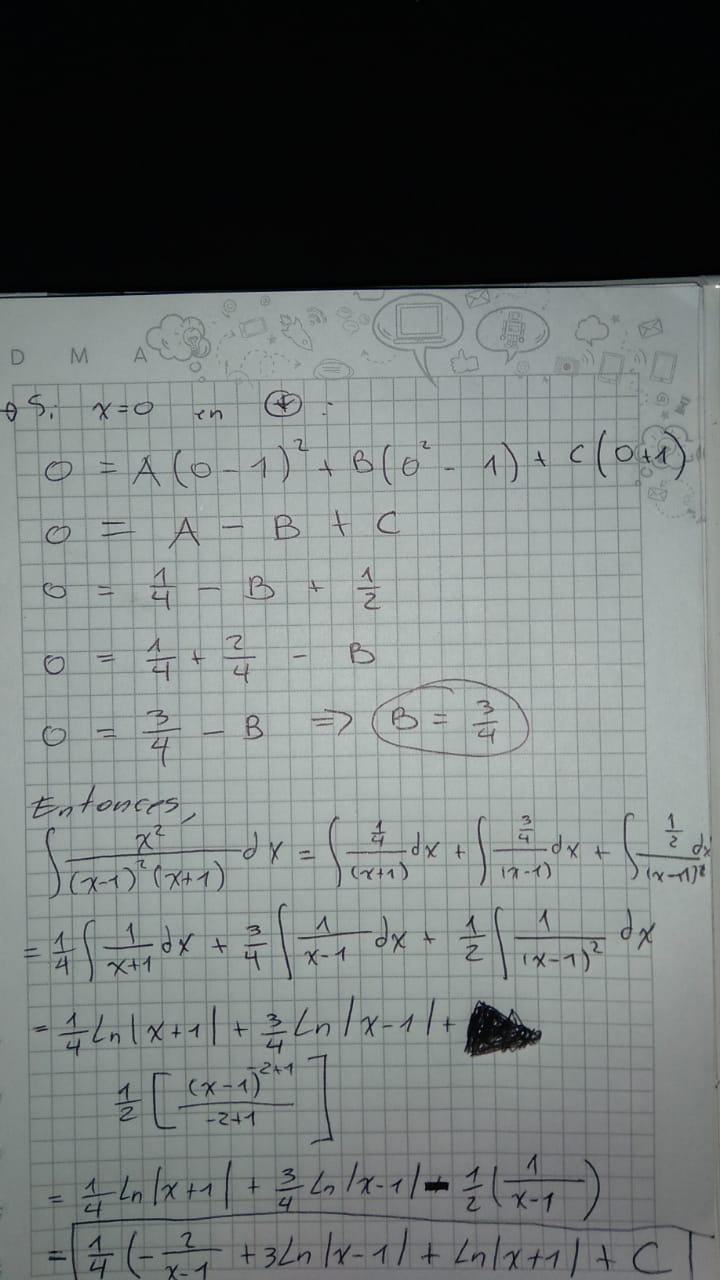 D M A
→ Si x=0 en (+) :
0 = A(0-1)² + B(0²-1) + C(0+1)
0 = A - B + C
0 = 1/4 - B + 1/2
0 = 1/4 + 2/4 - B
0 = 3/4 - B => B = 3/4
Entonces,
∫ x²/((x-1)²(x+1)) dx = ∫ (1/4)/(x+1) dx + ∫ (3/4)/(x-1) dx + ∫ (1/2)/(x-1)² dx
= 1/4 ∫ 1/(x+1) dx + 3/4 ∫ 1/(x-1) dx + 1/2 ∫ 1/(x-1)² dx
= 1/4 Ln|x+1| + 3/4 Ln|x-1| +
1/2 [ (x-1)^(-2+1) / (-2+1) ]
= 1/4 Ln|x+1| + 3/4 Ln|x-1| - 1/2 (1/(x-1))
= 1/4 (- 2/(x-1) + 3Ln|x-1| + Ln|x+1| + C